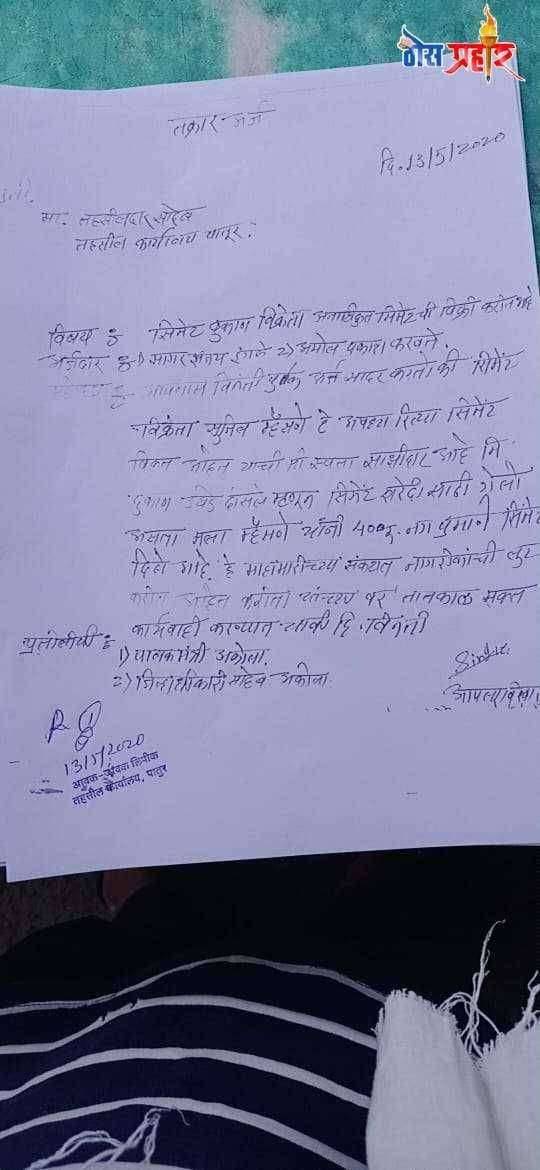 ठोस प्रहार
तक्रार अर्ज
दि. 13/5/2020
मा. तहसीलदार साहेब
तहसील कार्यालय पातूर.
विषय :- सिमेंट दुकान विक्रेता सिमेंटची विक्री करीत आहे
अर्जदार :- 1) सागर संजय इंगळे 2) अमोल प्रकाश करवते.
आपणास विनंती पुर्वक अर्ज सादर करतो की सिमेंट
विक्रेता सुनिल म्हैसणे हे रित्या सिमेंट
विकत आहेत याची मी स्वता साक्षीदार आहे मि
दुकान उघडे दिसले म्हणून सिमेंट खरेदी साठी गेलो
असता मला म्हैसणे यांनी 400रु. नग प्रमाणे सिमेंट
दिले आहे. हे माहामारीच्या संकटात नागरीकांची लुट
करीत आहेत करीता यांच्या वर तात्काळ सक्त
कार्यवाही करण्यात यावी हि विनंती
प्रतीलीपी :-
1) पालकमंत्री अकोला.
2) जिल्हाधिकारी साहेब अकोला.
13/5/2020
आवक-जावक लिपीक
तहसील कार्यालय, पातुर